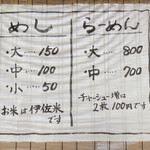 めし
・大……150
・中……100
・小……50
お米は伊佐米
です
らーめん
・大……800
・中……700
チャーシュー増は
2枚100円です